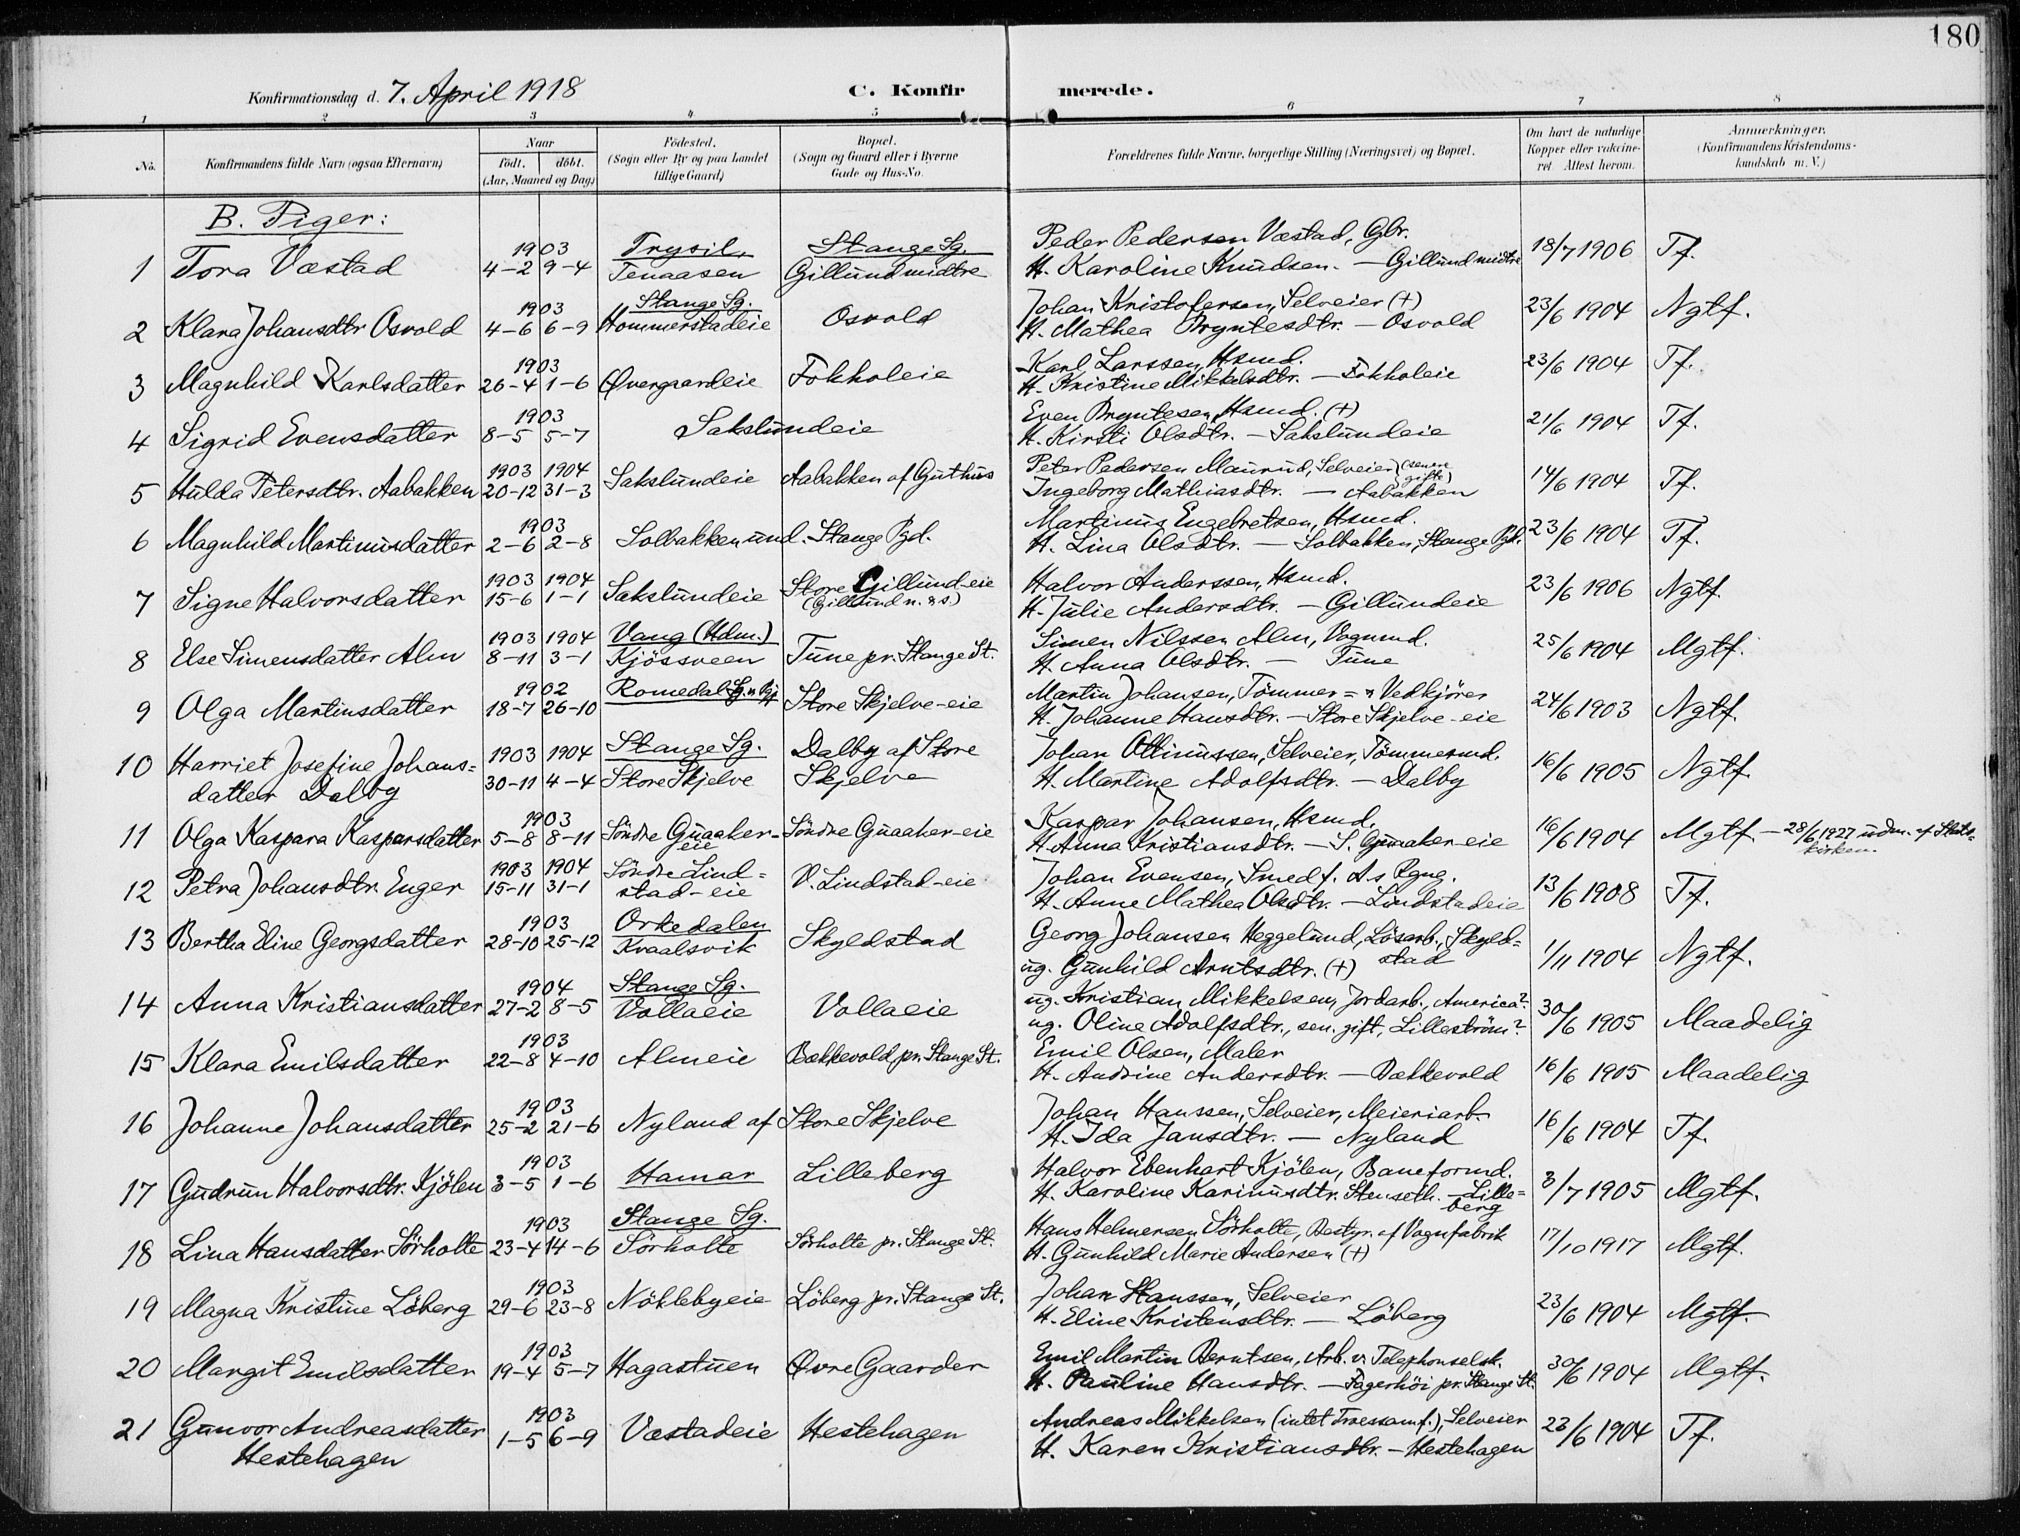 180
Konfirmationsdag d. 7. April 1918
C. Konfirmerede.
1 2 3 4 5 6 7 8
No.
Konfirmandens fulde Navn (ogsaa Efternavn)
Naar
født. døbt.
(Aar, Maaned og Dag)
Födested.
(Sogn eller By og paa Landet
tillige Gaard)
Bopæl.
(Sogn og Gaard eller i Byerne
Gade og Hus-No.
Forældrenes fulde Navne, borgerlige Stilling (Næringsvei) og Bopæl.
Om havt de naturlige
Kopper eller vaccine-
ret Attest herom.
Anmerkninger.
(Konfirmandens Kristendoms-
kundskab m. V.)
B. Piger:
1 Tora Væstad 1903 4-2 9-4 Trysil, Tenaasen Stange Sg. Gillund midtre
Peder Pedersen Væstad, Gbr.
H. Karoline Knudsen. — Gillund midtre 18/7 1906 Tf.
2 Klara Johansdtr Osvold 1903 4-6 6-9 Stange Sg. Hommerstadeie Osvold
Johan Kristofersen, Selveier (+)
H. Mathea Bryntesdtr. — Osvold 23/6 1904 Ngtf.
3 Magnhild Karlsdatter 1903 26-4 1-6 Øvergaardeie Fokholeie
Karl Larssen, Hsmd.
H. Kristine Mikkelsdtr. — Fokholeie 23/6 1904 Tf.
4 Sigrid Evensdatter 1903 8-5 5-7 Sakslundeie
Even Bryntesen, Hsmd. (+)
H. Kirsti Olsdtr. — Sakslundeie 21/6 1904 Tf.
5 Hulda Petersdtr. Aabakken 1903 20-12 1904 31-3 Sakslundeie Aabakken af Guthus
Peter Pedersen Maurud, Selveier (senere gifte)
Ingeborg Mathiasdtr. — Aabakken 14/6 1904 Tf.
6 Magnhild Martinusdatter 1903 2-6 2-8 Solbakken und. Stange Pgd.
Martinus Engebretsen, Hsmd.
H. Lina Olsdtr. — Solbakken, Stange Pgd. 23/6 1904 Tf.
7 Signe Halvorsdatter 1903 15-6 1904 1-1 Sakslundeie Store Gillund-eie (Gillund n. & s.)
Halvor Anderssen, Hsmd.
H. Julie Andersdtr. — Gillundeie 23/6 1906 Ngtf.
8 Else Simensdatter Alm 1903 8-11 1904 3-1 Vang (Hdm.) Kjössveen Tune pr. Stange St.
Simen Nilssen Alm, Vognmd.
H. Anna Olsdtr. — Tune 25/6 1904 Mgtf.
9 Olga Martinsdatter 1902 18-7 26-10 Romedal Sg. Store Skjelve-eie
Martin Johansen, Tömmer= & Vedkjörer
H. Johanne Hansdtr. — Store Skjelve-eie 24/6 1903 Ngtf.
10 Harriet Josefine Johans=
datter Dalby 1903 30-11 1904 4-4 Stange Sg. Store Skjelve Dalby af Store Skjelve
Johan Ottinussen, Selveier, Tömmermd.
H. Martine Adolfsdtr. — Dalby 16/6 1905 Ngtf.
11 Olga Kaspara Kasparsdatter 1903 5-8 8-11 Söndre Guaaker-eie Söndre Guaaker-eie
Kaspar Johansen, Hsmd.
H. Anna Kristiansdtr. — S. Guaaker-eie 16/6 1904 Mgtf. — 28/6 1927 udm. af Stats-
kirken.
12 Petra Johansdtr. Enger 1903 15-11 1904 31-1 Söndre Lind=
stad-eie V. Lindstad-eie
Johan Evensen, Smed f. A.s Rgng.
H. Anne Mathea Olsdtr. — Lindstadeie 13/6 1908 Tf.
13 Bertha Eline Georgsdatter 1903 28-10 25-12 Orkedalen Kvaalsvik Skyldstad
Georg Johansen Heggelund, Lösarb., Skyld=
stad
ug. Gunhild Arntsdtr. (+) 1/11 1904 Ngtf.
14 Anna Kristiansdatter 1904 27-2 8-5 Stange Sg. Vollaeie Vollaeie
ug. Kristian Mikkelsen, Jordarb., America?
ug. Oline Adolfsdtr., sen. gift, Lilleström? 30/6 1905 Maadelig
15 Klara Emilsdatter 1903 22-8 4-10 Almeie Bækkevold, pr. Stange St.
Emil Olsen, Maler
H. Andrine Andersdtr. — Bækkevold 16/6 1905 Maadelig
16 Johanne Johansdatter 1903 25-2 21-6 Nyland af Store Skjelve
Johan Hanssen, Selveier, Meieriarb.
H. Ida Jansdtr. — Nyland 16/6 1904 Tf.
17 Gudrun Halvorsdtr. Kjölen 1903 3-5 1-6 Hamar Lilleberg
Halvor Ebenhart Kjölen, Baneformd.
H. Karoline Karinusdtr. Stenseth. — Lille=
berg 3/7 1905 Mgtf.
18 Lina Hansdatter Sörholte 1903 23-4 14-6 Stange Sg. Sörholte Sörholte pr. Stange St.
Hans Helmersen Sörholte, Bestyr. af Vognfabrik
H. Gunhild Marie Andersen (+) 17/10 1917 Mgtf.
19 Magna Kristine Löberg 1903 29-6 23-8 Nöklebyeie Löberg pr. Stange St.
Johan Hanssen, Selveier
H. Eline Kristensdtr. — Löberg 23/6 1904 Mgtf.
20 Margit Emilsdatter 1903 19-4 5-7 Hagastuen Øvre Gaarder
Emil Martin Berntsen, Arb. v. Telephonselsk.
H. Pauline Hansdtr. — Fagerhöi pr. Stange St. 30/6 1904 Mgtf.
21 Gunvor Andreasdatter
Hestehagen 1903 1-5 6-9 Væstadeie Hestehagen
Andreas Mikkelsen (intet Troessamf.), Selveier
H. Karen Kristiansdtr. — Hestehagen 23/6 1904 Tf.